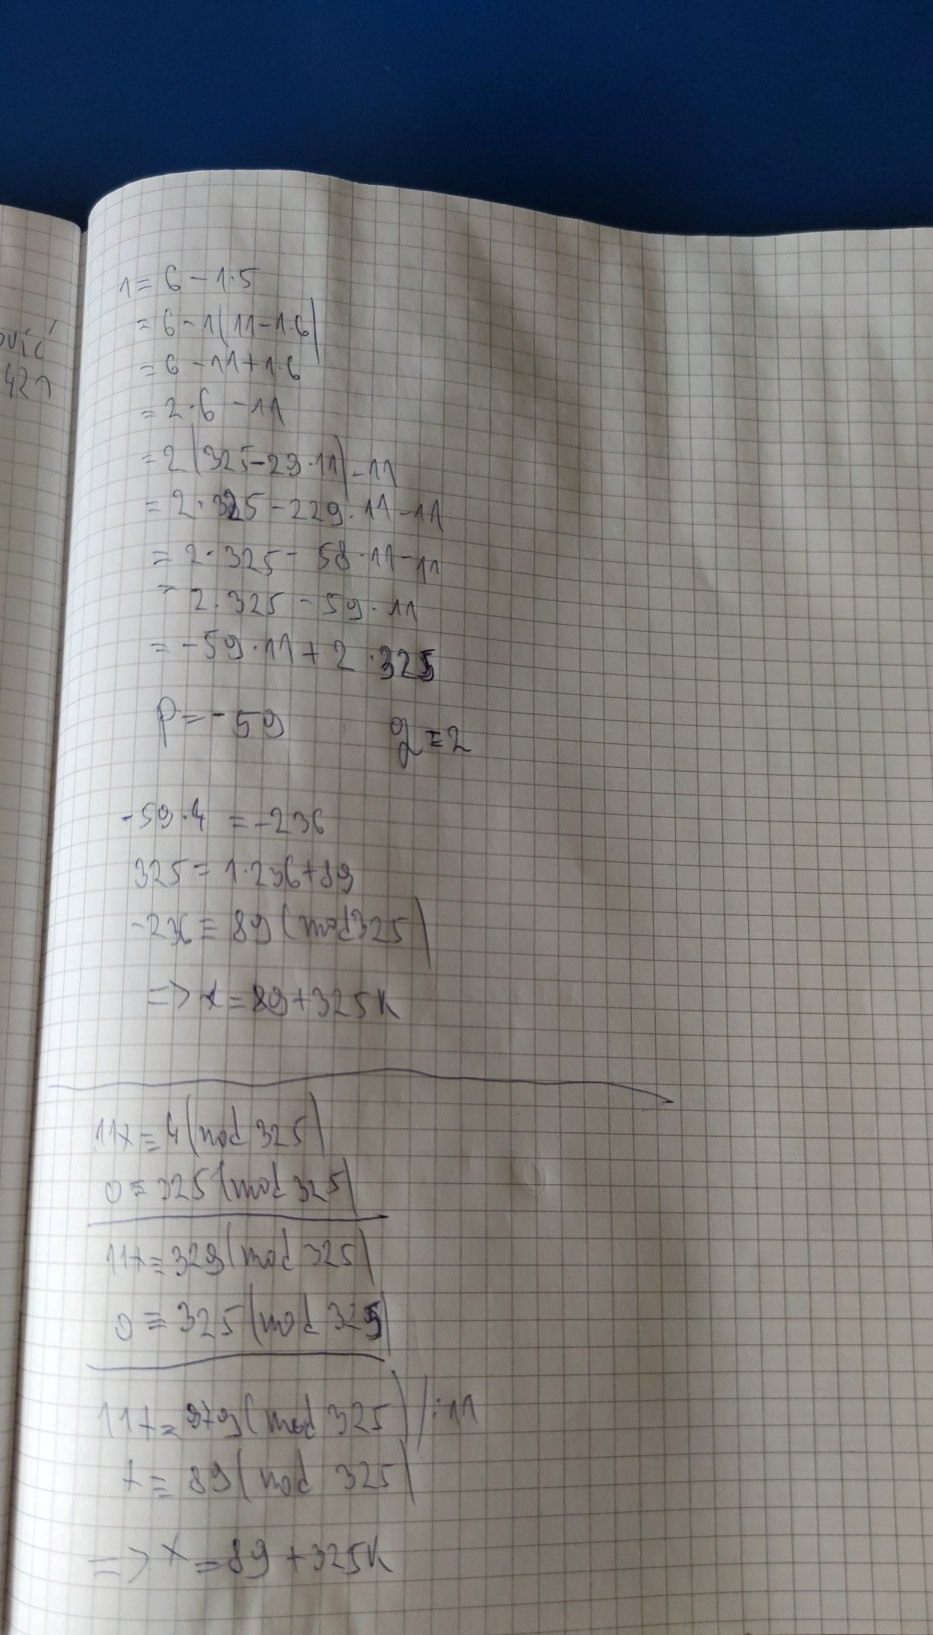 ović
421
1 = 6 - 1·5
= 6 - 1(11-1·6)
= 6 - 11 + 1·6
= 2·6 - 11
= 2(325-29·11) - 11
= 2·325 - 229·11 - 11
= 2·325 - 58·11 - 11
= 2·325 - 59·11
= -59·11 + 2·325
p = -59 q = 2
-59·4 = -236
325 = 1·236+89
≡ 89 (mod 325)
=> x = 89+325k
11x ≡ 4 (mod 325)
0 ≡ 325 (mod 325)
11x ≡ 329 (mod 325)
0 ≡ 325 (mod 325)
11x ≡ 979 (mod 325) /:11
x ≡ 89 (mod 325)
=> x = 89 + 325k